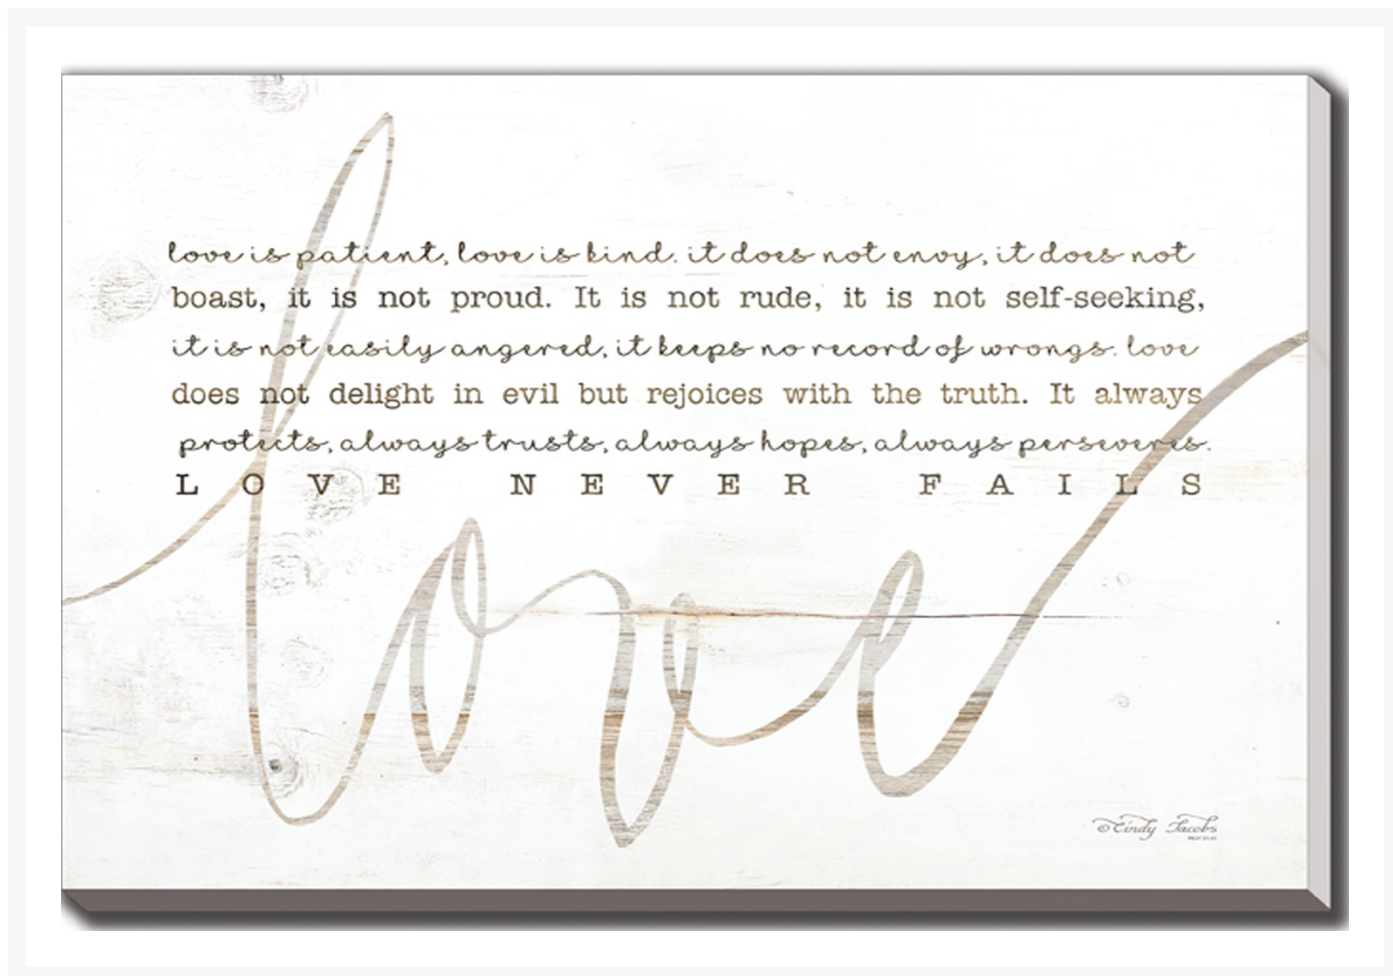 love is patient, love is kind. it does not envy, it does not
boast, it is not proud. It is not rude, it is not self-seeking,
it is not easily angered, it keeps no record of wrongs. love
does not delight in evil but rejoices with the truth. It always
protects, always trusts, always hopes, always perseveres.
LOVE NEVER FAILS
love
©Cindy Jacobs